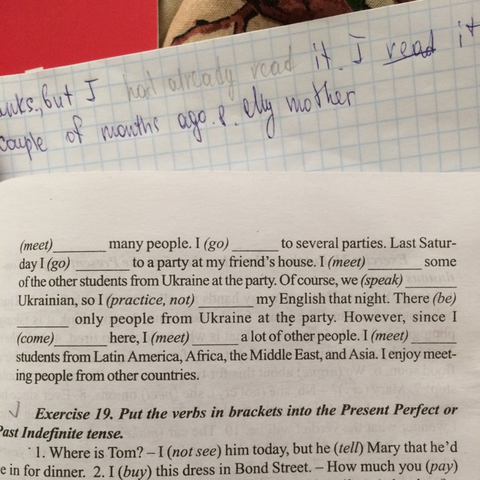 anks, but I had already read it. I read it
couple of months ago. 8. My mother
(meet)______ many people. I (go) ______ to several parties. Last Satur-
day I (go) ______ to a party at my friend's house. I (meet) ______ some
of the other students from Ukraine at the party. Of course, we (speak) ______
Ukrainian, so I (practice, not) ______ my English that night. There (be)
______ only people from Ukraine at the party. However, since I
(come) ______ here, I (meet) ______ a lot of other people. I (meet) ______
students from Latin America, Africa, the Middle East, and Asia. I enjoy meet-
ing people from other countries.
Exercise 19. Put the verbs in brackets into the Present Perfect or
Past Indefinite tense.
1. Where is Tom? – I (not see) him today, but he (tell) Mary that he'd
e in for dinner. 2. I (buy) this dress in Bond Street. – How much you (pay)